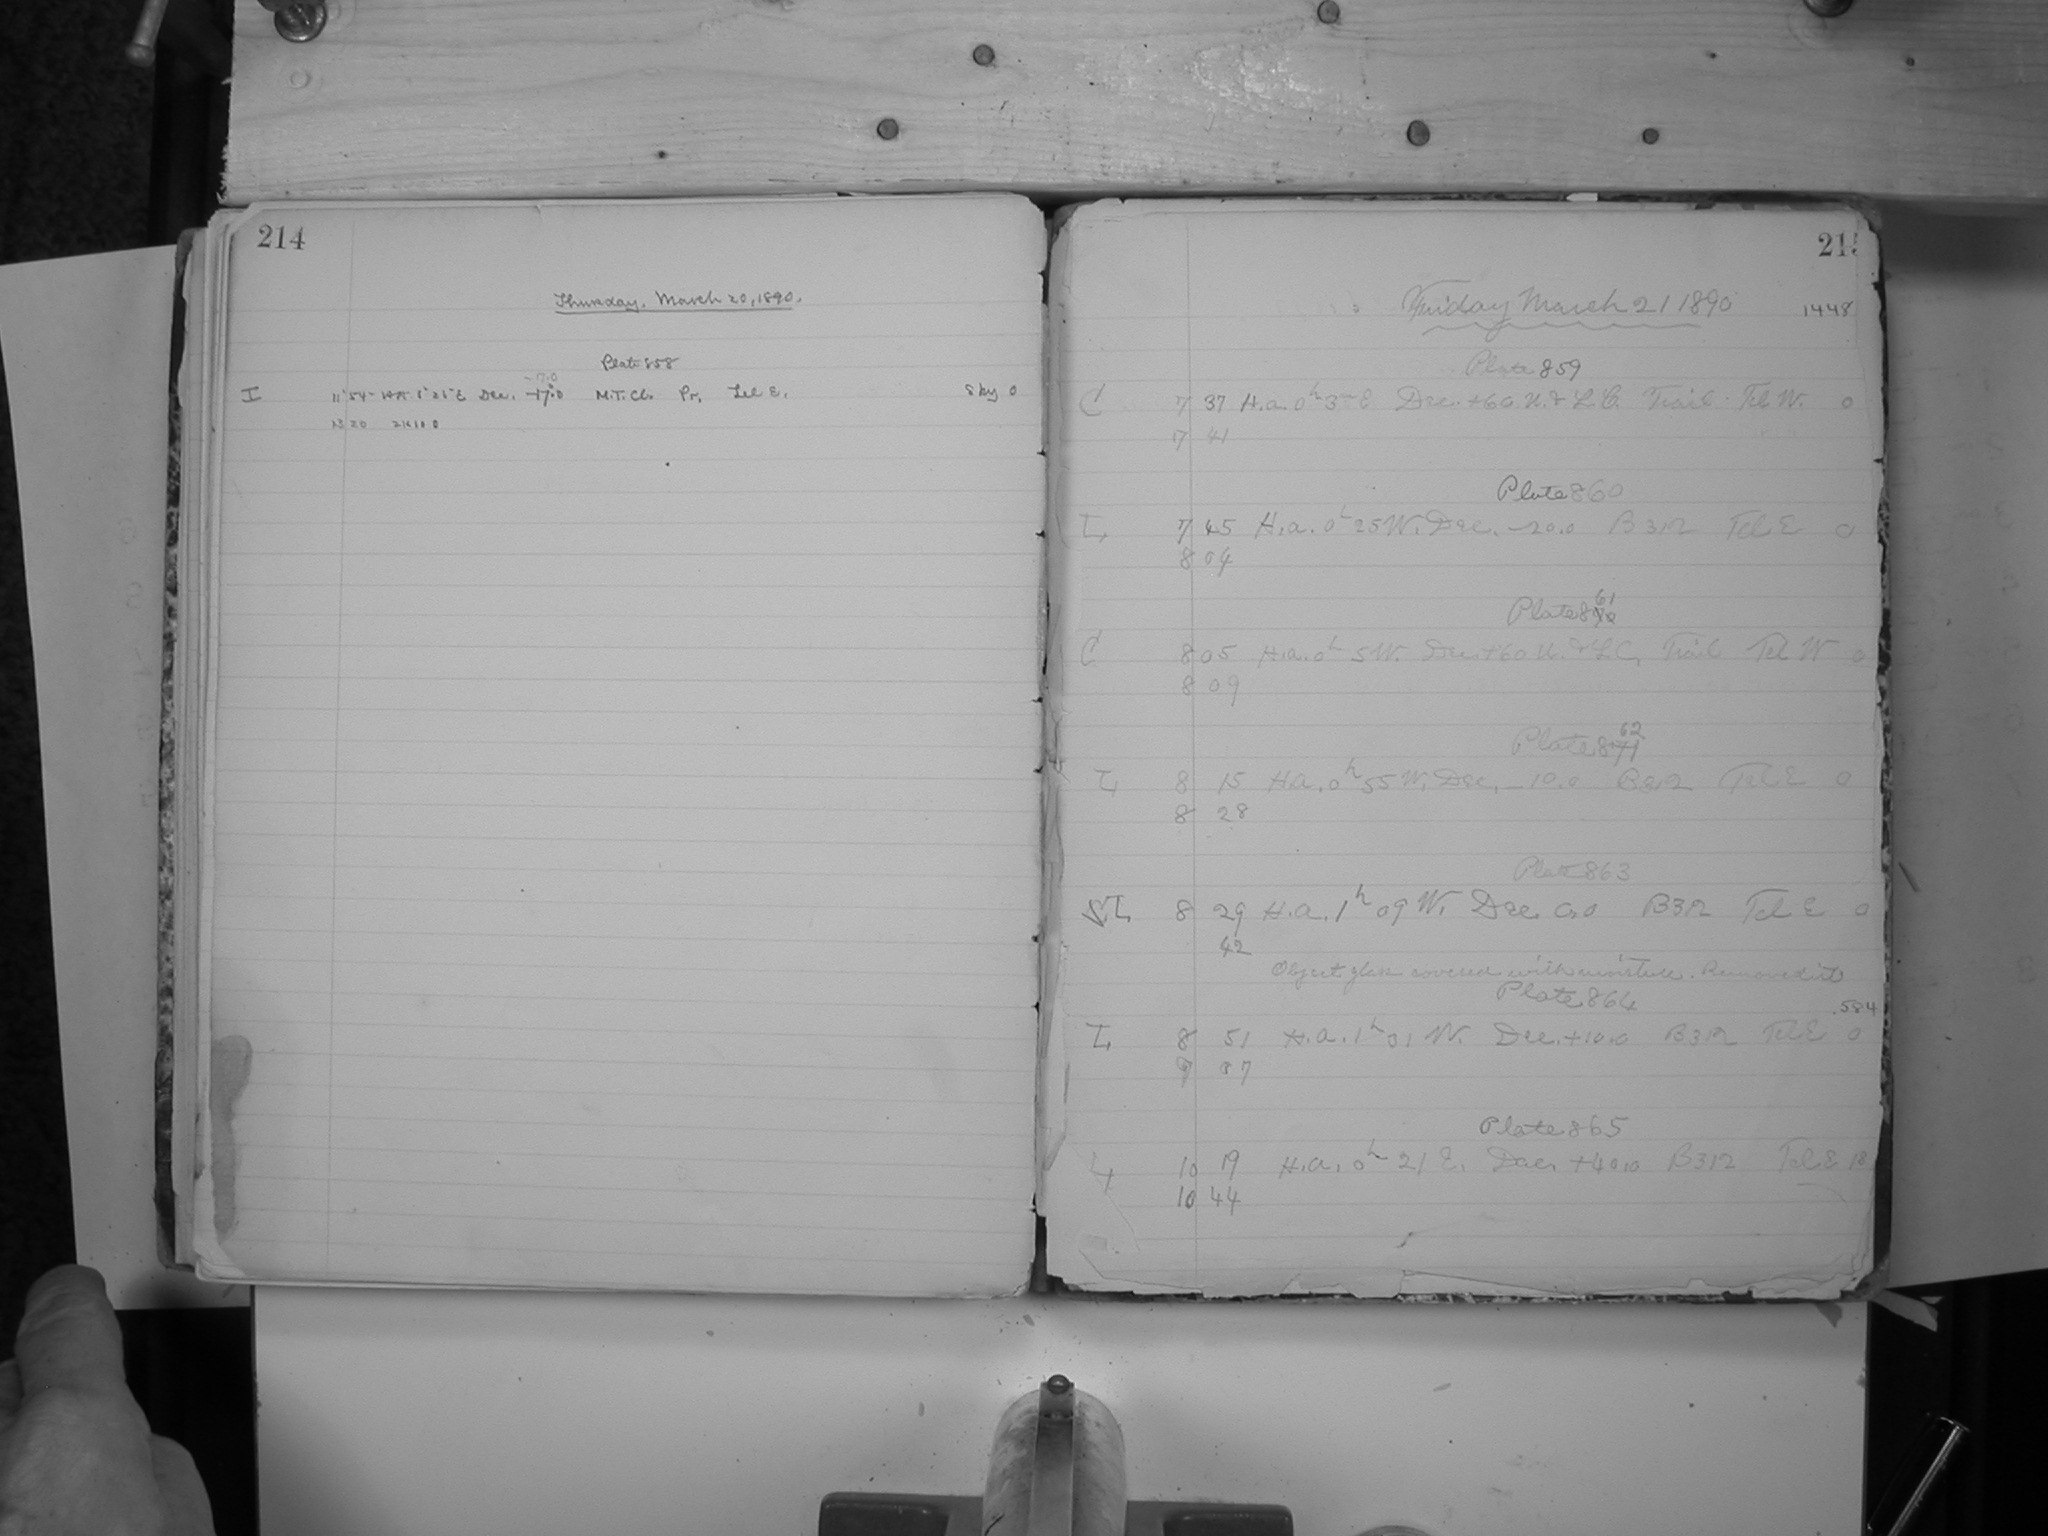 214
Thursday, March 20, 1890.
Plate 858
-17.0
I 11 54 HA 5 25 E Dec. -17.0 M.T. Cl. Pr. Tel E. Sky 0
215
Friday March 21 1890
1448
Plate 859
C 7 37 H.a. 0h 35 E Dec. +60 U. & L.C. Trail Tel W. 0
7 41
Plate 860
I, 7 45 H.a. 0h 25 W. Dec. -20.0 B312 Tel E 0
8 04
61
Plate 870
C 8 05 H.a. 0h 5 W. Dec. +60 U. & L.C, Trail Tel W 0
8 09
62
Plate 871
I, 8 15 H.a. 0h 55 W. Dec. -10.0 B312 Tel E 0
8 28
Plate 863
I, 8 29 H.a. 1h 09 W. Dec. 0.0 B312 Tel E 0
42
Object glass covered with moisture. Removed it
Plate 864
584
I, 8 51 H.a. 1h 31 W. Dec. +10.0 B312 Tel E 0
9 07
Plate 865
I, 10 19 H.a. 0h 21 E. Dec. +40.0 B312 Tel E 18
10 44